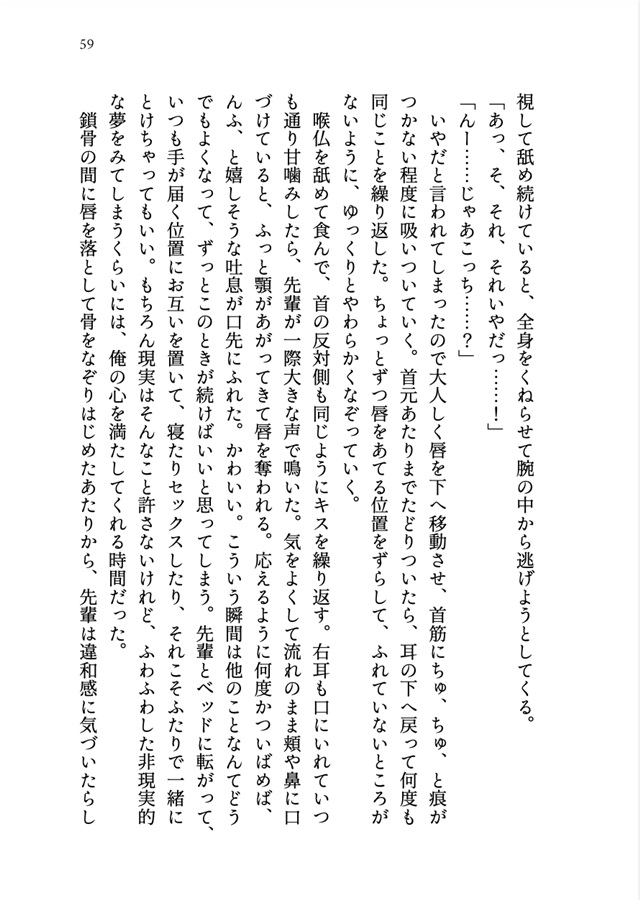 59
視して舐め続けていると、全身をくねらせて腕の中から逃げようとしてくる。
「あっ、そ、それ、それいやだっ……！」
「んー……じゃあこっち……？」
いやだと言われてしまったので大人しく唇を下へ移動させ、首筋にちゅ、ちゅ、と痕が
つかない程度に吸いついていく。首元あたりまでたどりついたら、耳の下へ戻って何度も
同じことを繰り返した。ちょっとずつ唇をあてる位置をずらして、ふれていないところが
ないように、ゆっくりとやわらかくなぞっていく。
喉仏を舐めて食んで、首の反対側も同じようにキスを繰り返す。右耳も口にいれていつ
も通り甘噛みしたら、先輩が一際大きな声で鳴いた。気をよくして流れのまま頬や鼻に口
づけていると、ふっと顎があがってきて唇を奪われる。応えるように何度かついばめば、
んふ、と嬉しそうな吐息が口先にふれた。かわいい。こういう瞬間は他のことなんてどう
でもよくなって、ずっとこのときが続けばいいと思ってしまう。先輩とベッドに転がって、
いつも手が届く位置にお互いを置いて、寝たりセックスしたり、それこそふたりで一緒に
とけちゃってもいい。もちろん現実はそんなこと許さないけれど、ふわふわした非現実的
な夢をみてしまうくらいには、俺の心を満たしてくれる時間だった。
鎖骨の間に唇を落として骨をなぞりはじめたあたりから、先輩は違和感に気づいたらし